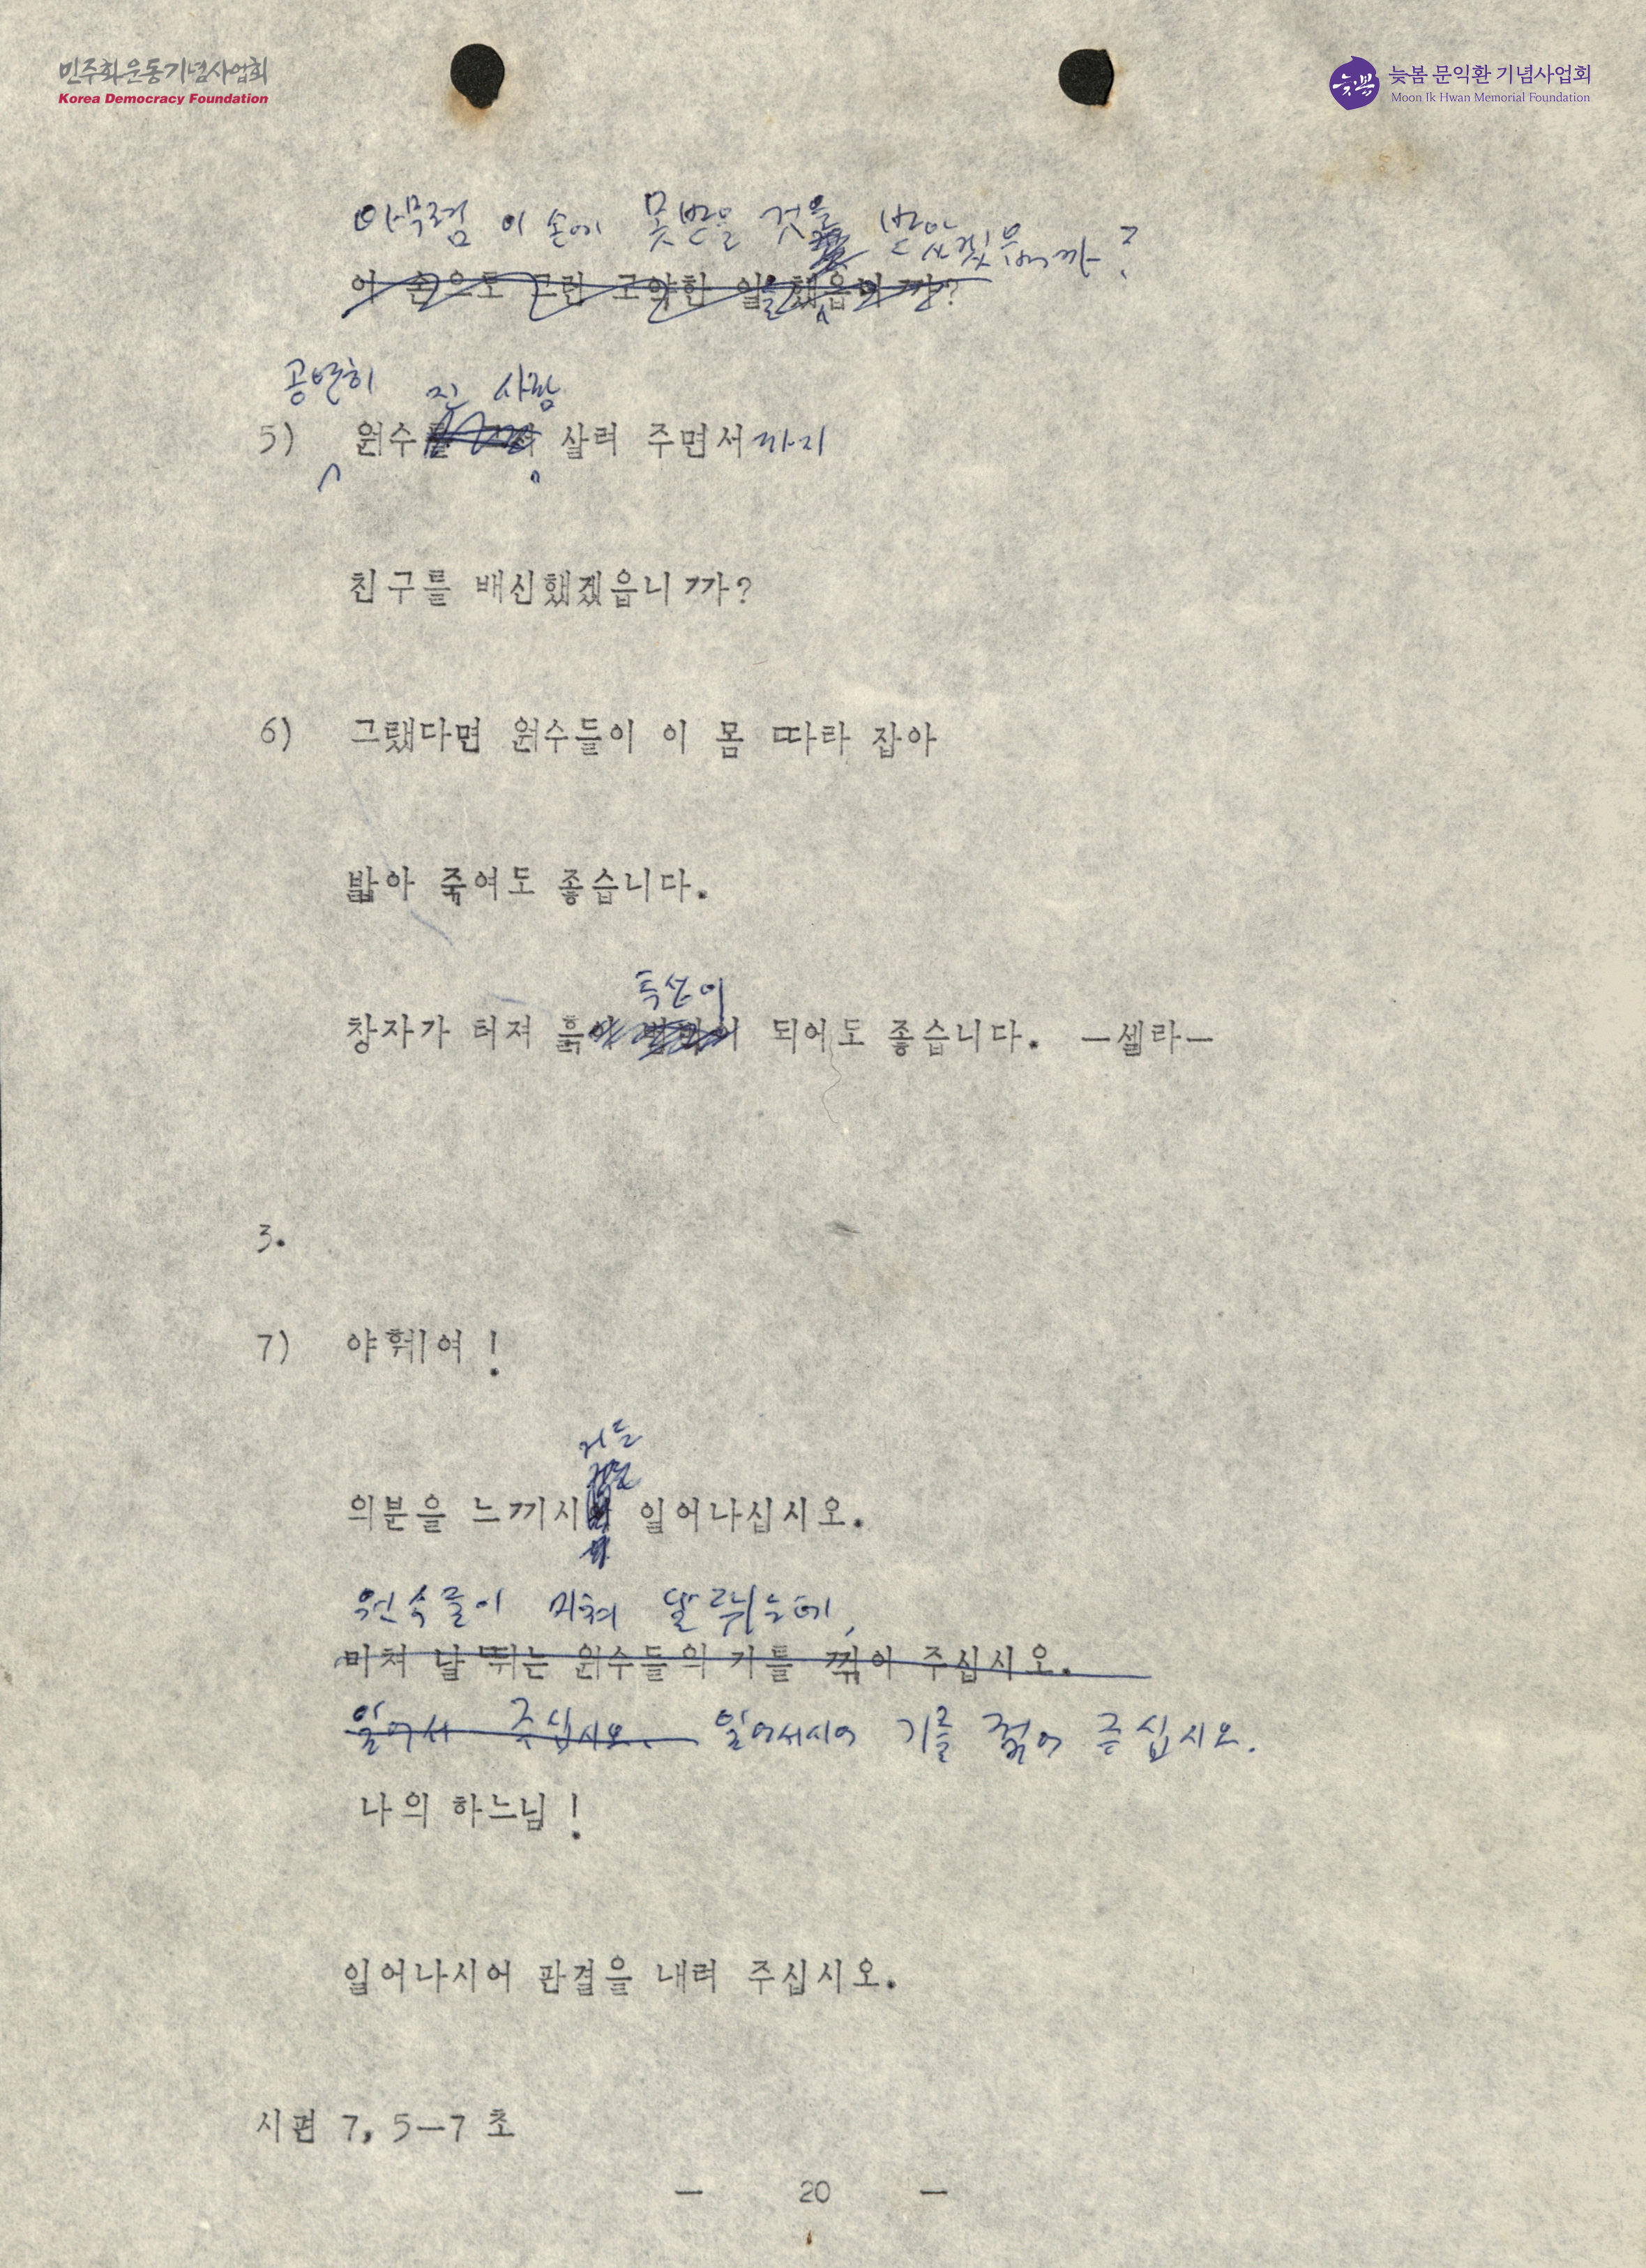 민주화운동기념사업회
Korea Democracy Foundation
늦봄
늦봄 문익환 기념사업회
Moon Ik Hwan Memorial Foundation
아무렴 이 손에 못받을 것을 받았겠읍니까?
이 손으로 그런 고약한 일을 했읍니까?
공연히 진 사람
5) 원수를 살려 주면서까지
친구를 배신했겠읍니까?
6) 그랬다면 원수들이 이 몸 따라 잡아
밟아 죽여도 좋습니다.
특산이
창자가 터져 흙이 되어도 좋습니다. —셀라—
3.
7) 야훼여!
거든
의분을 느끼시 일어나십시오.
원수들이 미쳐 날뛰는데,
미쳐 날뛰는 원수들의 기를 꺾어 주십시오.
일어서 주십시오. 일어서시어 기를 꺾어 주십시오.
나의 하느님!
일어나시어 판결을 내려 주십시오.
시편 7, 5—7 초
— 20 —